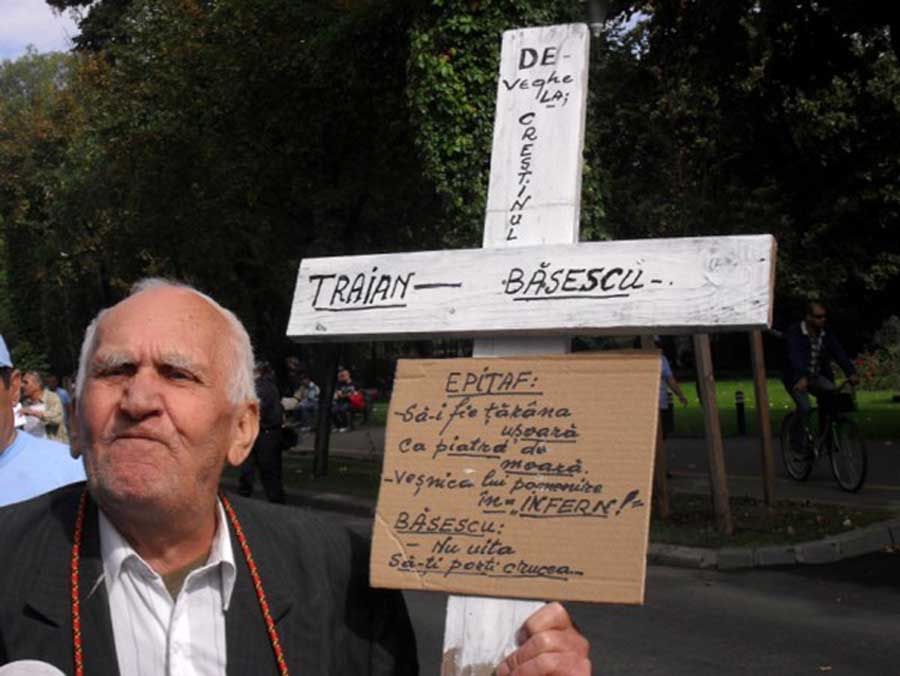 DE-
Veghe
LA;
CREȘTINUL
TRAIAN — BĂSESCU-.
EPITAF:
-Să-i fie țărâna
ușoară
Ca piatra de
moară.
-Veșnica lui pomenire
în="INFERN!"=
BĂSESCU:
- Nu uita
Să-ți porți crucea...